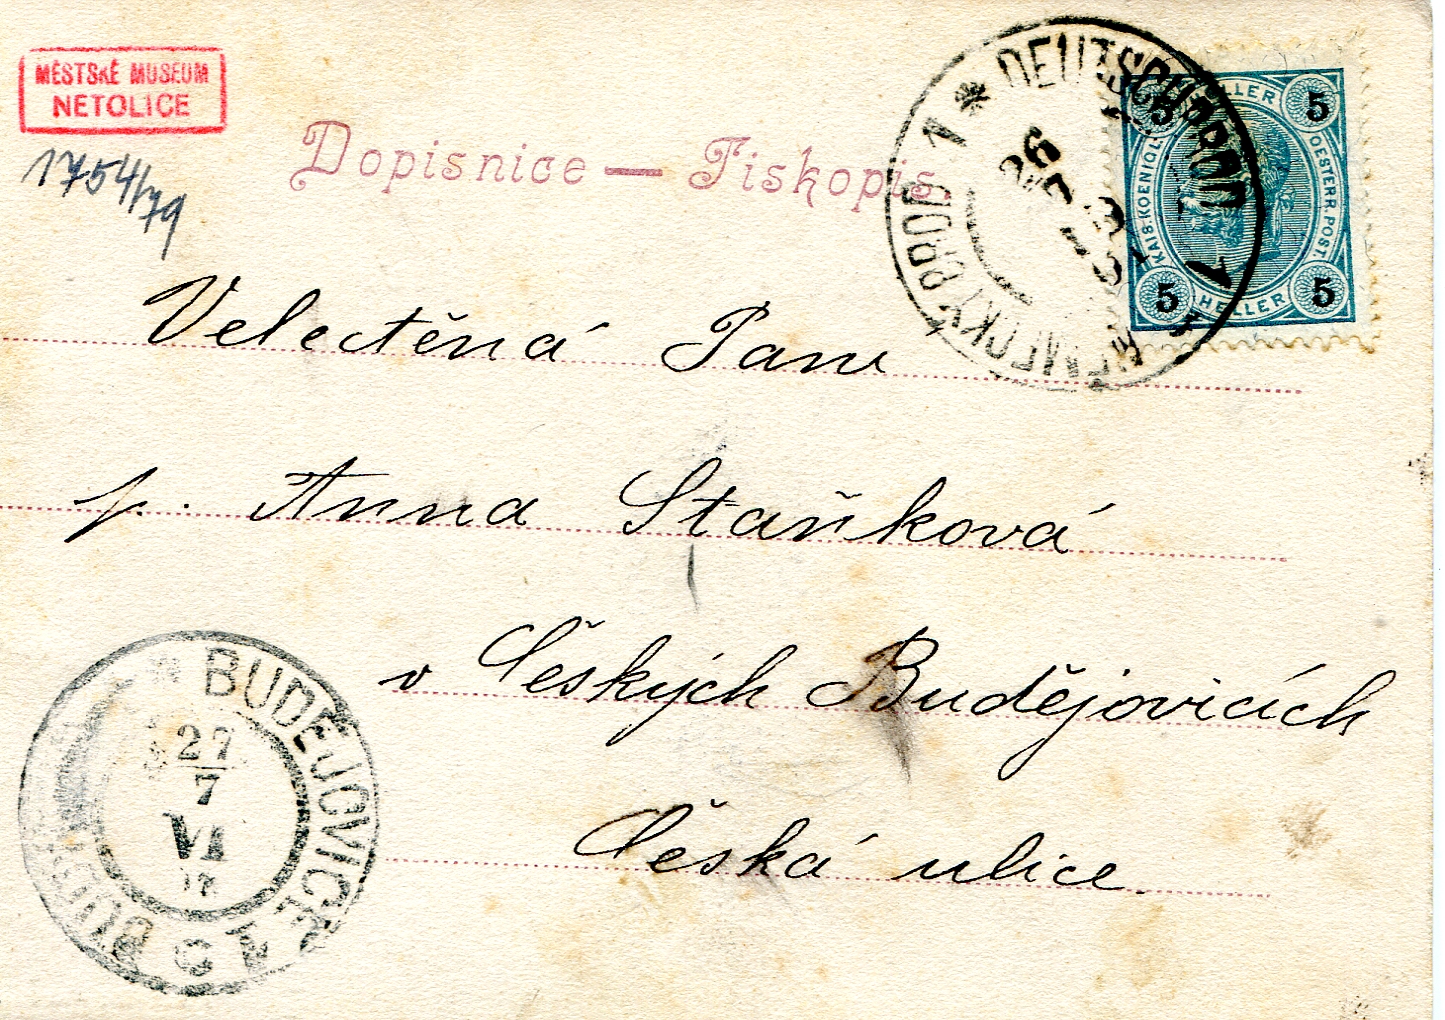 MĚSTSKÉ MUSEUM
NETOLICE
1754/79
Dopisnice — Tiskopis.
DEUTSCHBROD 1
NĚMECKÝ BROD 1
26
7
HELLER
5 5
KAIS. KOENIGL.
OESTERR. POST.
5 5
HELLER
Velectěná Paní
p. Anna Staňková
v Českých Budějovicích
Česká ulice.
BUDĚJOVICE
27
7
VI